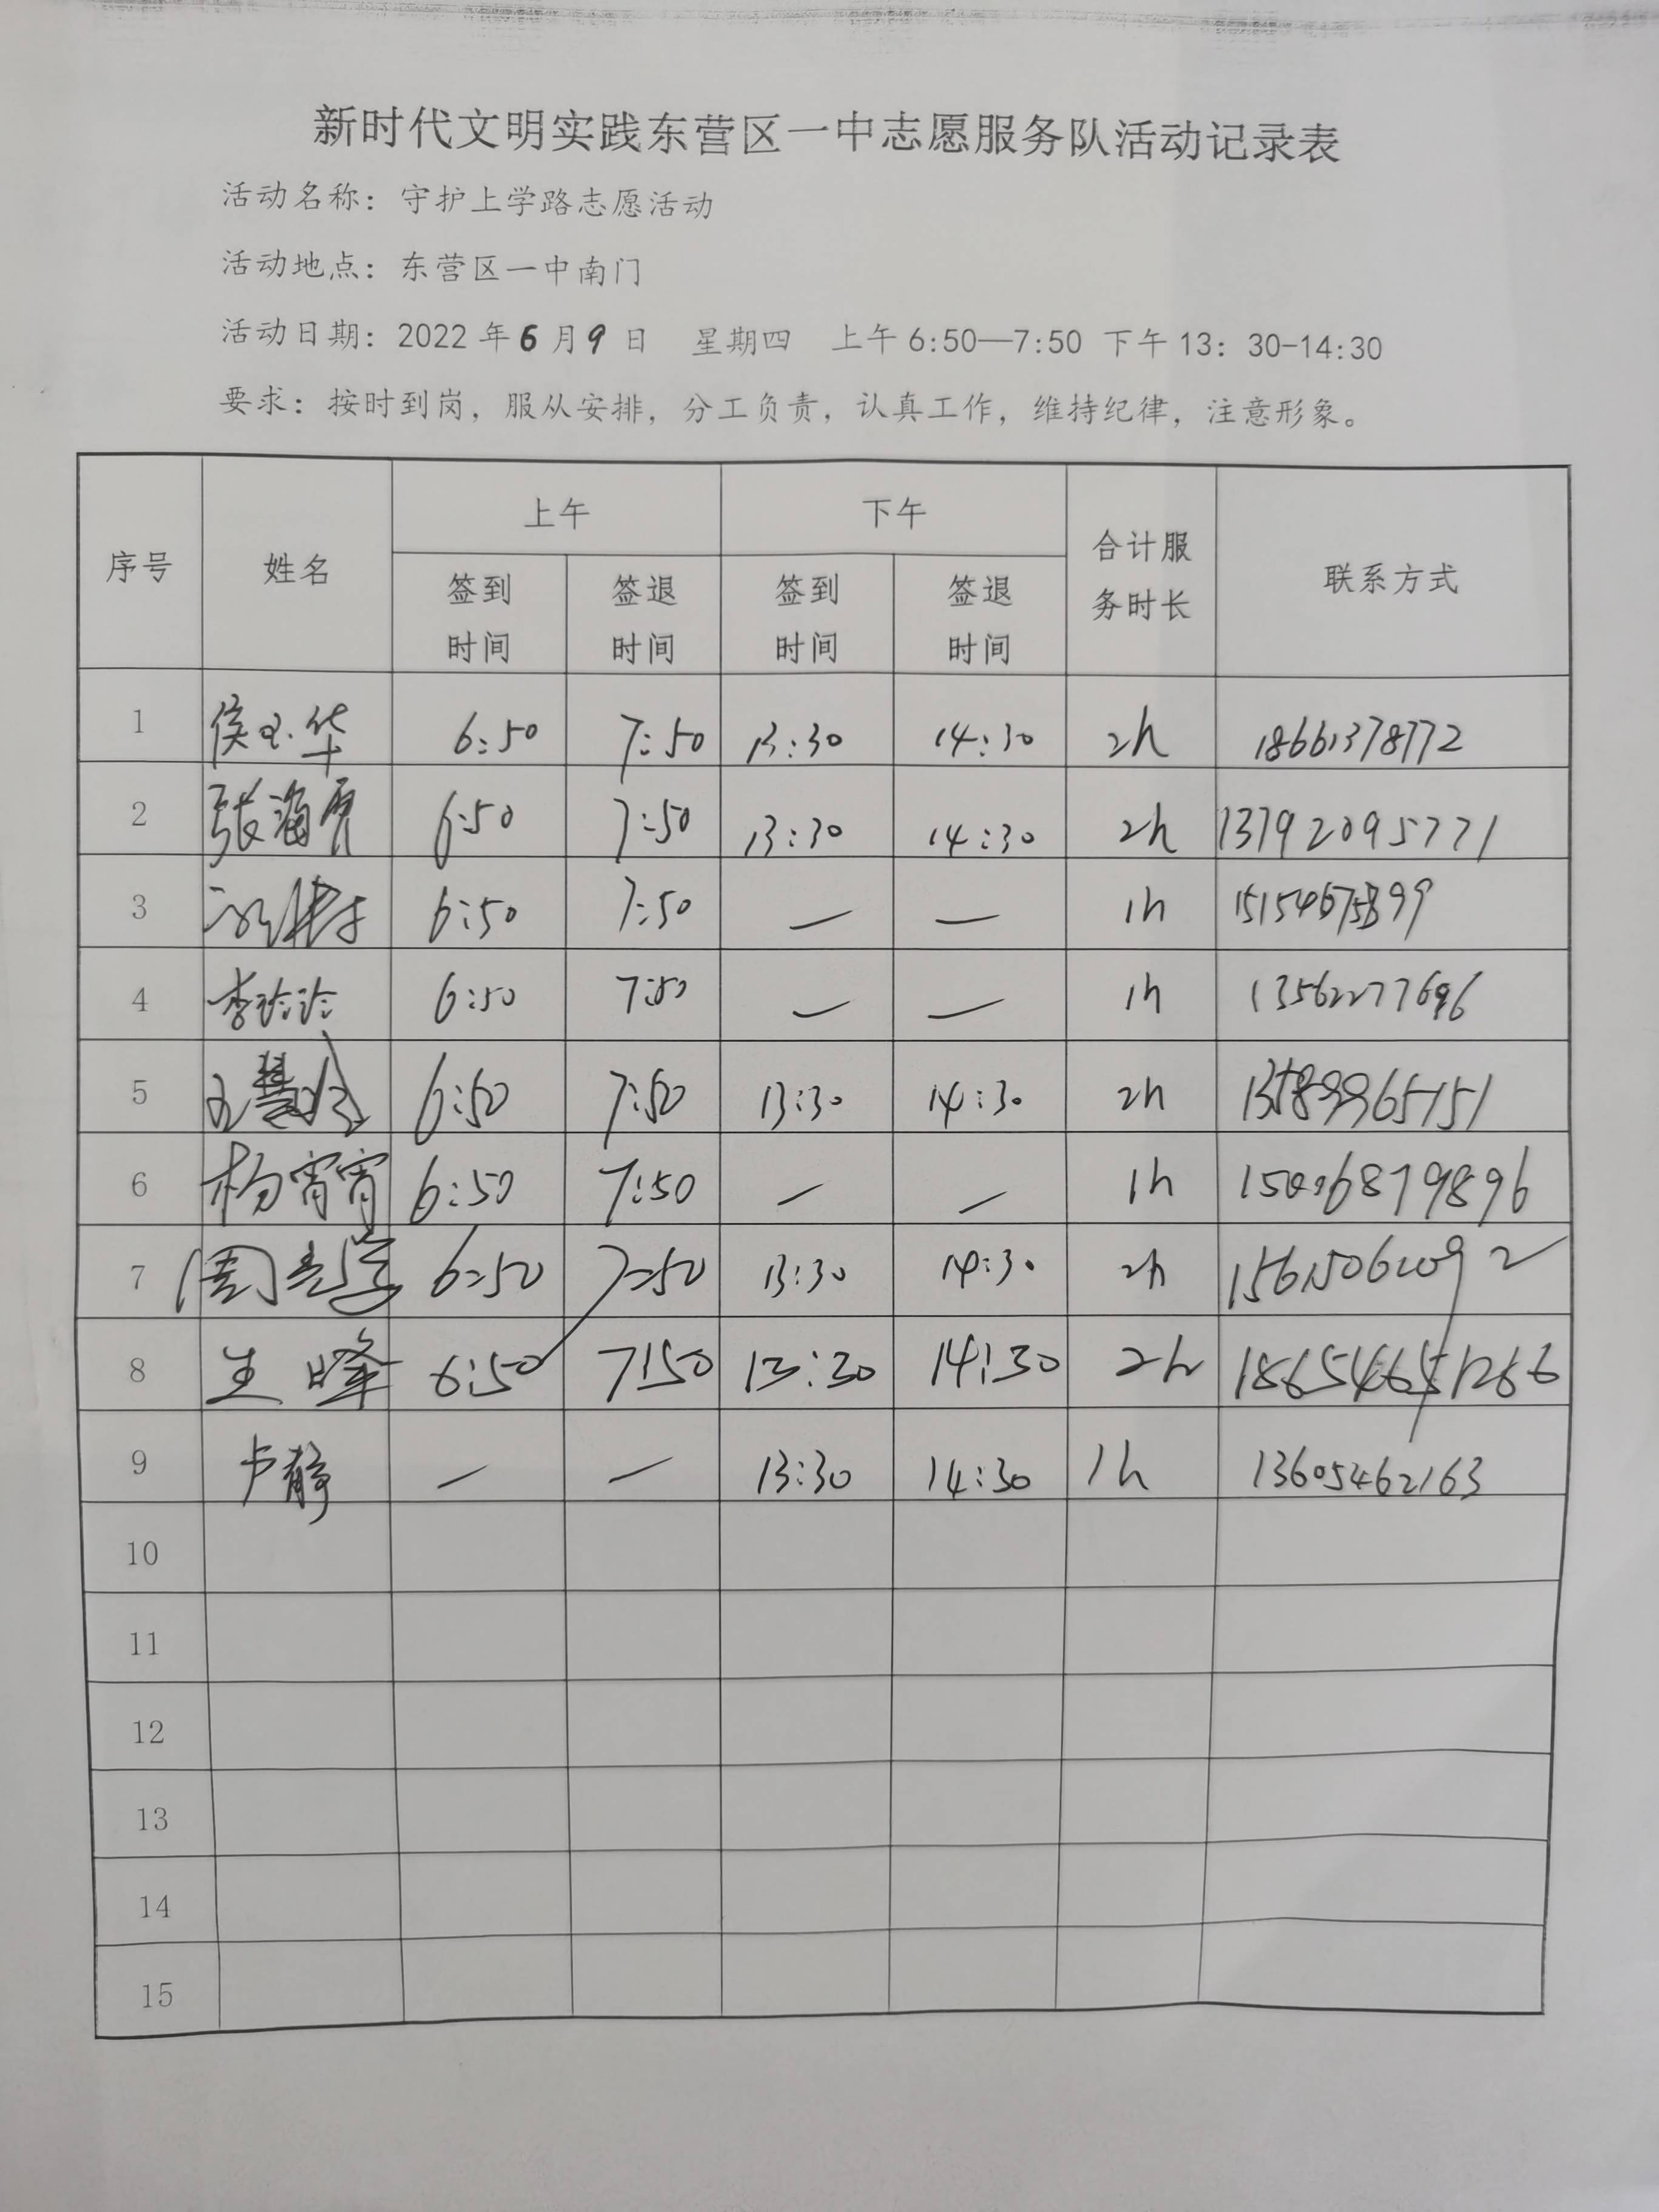 新时代文明实践东营区一中志愿服务队活动记录表
活动名称：守护上学路志愿活动
活动地点：东营区一中南门
活动日期：2022年6月9日 星期四 上午6:50—7:50 下午13：30-14:30
要求：按时到岗，服从安排，分工负责，认真工作，维持纪律，注意形象。
序号 姓名 上午 下午 合计服务时长 联系方式
签到时间 签退时间 签到时间 签退时间
1 侯玉华 6:50 7:50 13:30 14:30 2h 18661378772
2 张海 6:50 7:50 13:30 14:30 2h 13792095771
3 6:50 7:50 — — 1h
4 李玲玲 6:50 7:50 — — 1h 13562277696
5 王慧 6:50 7:50 13:30 14:30 2h
6 杨宵宵 6:50 7:50 — — 1h
7 周 6:50 7:50 13:30 14:30 2h
8 王峰 6:50 7:50 13:30 14:30 2h
9 卢静 — — 13:30 14:30 1h 13605462163
10
11
12
13
14
15